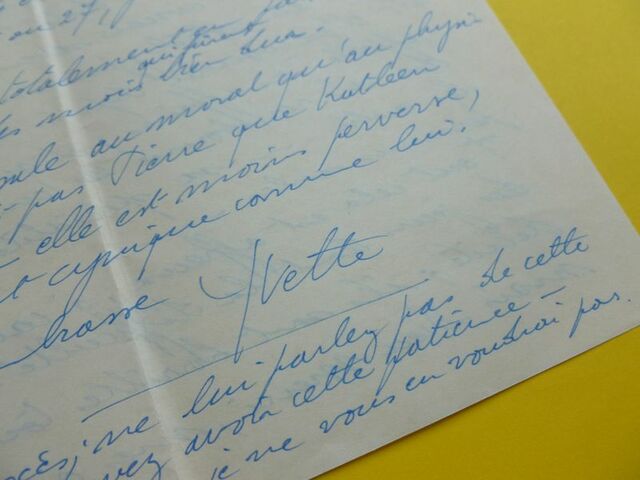 en 27,
totalement
qui furent
mois bien
au moral qu'au physi-
pas Pierre que Kathleen
elle est moins perverse,
cynique comme lui.
brasse Yvette
ne lui parlez pas de cette
avoir cette patience -
je ne vous en voudrai pas.